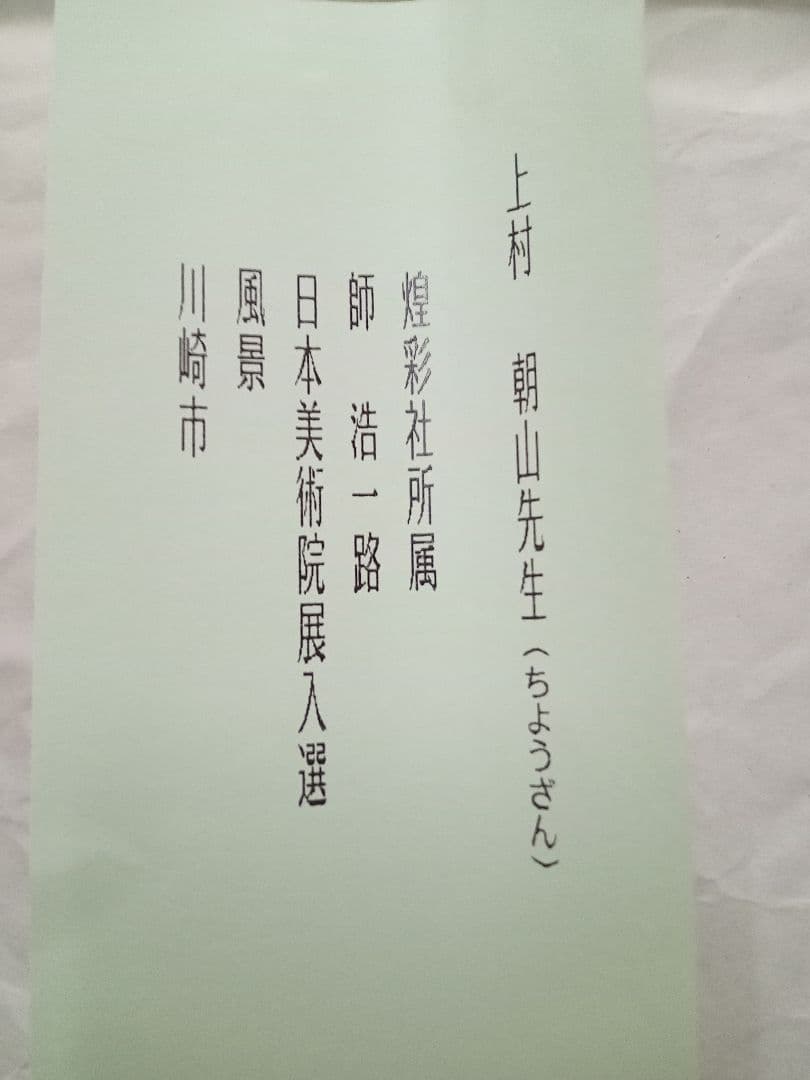 上村　朝山先生（ちょうざん）
煌彩社所属
師　浩一路
日本美術院展入選
風景
川崎市